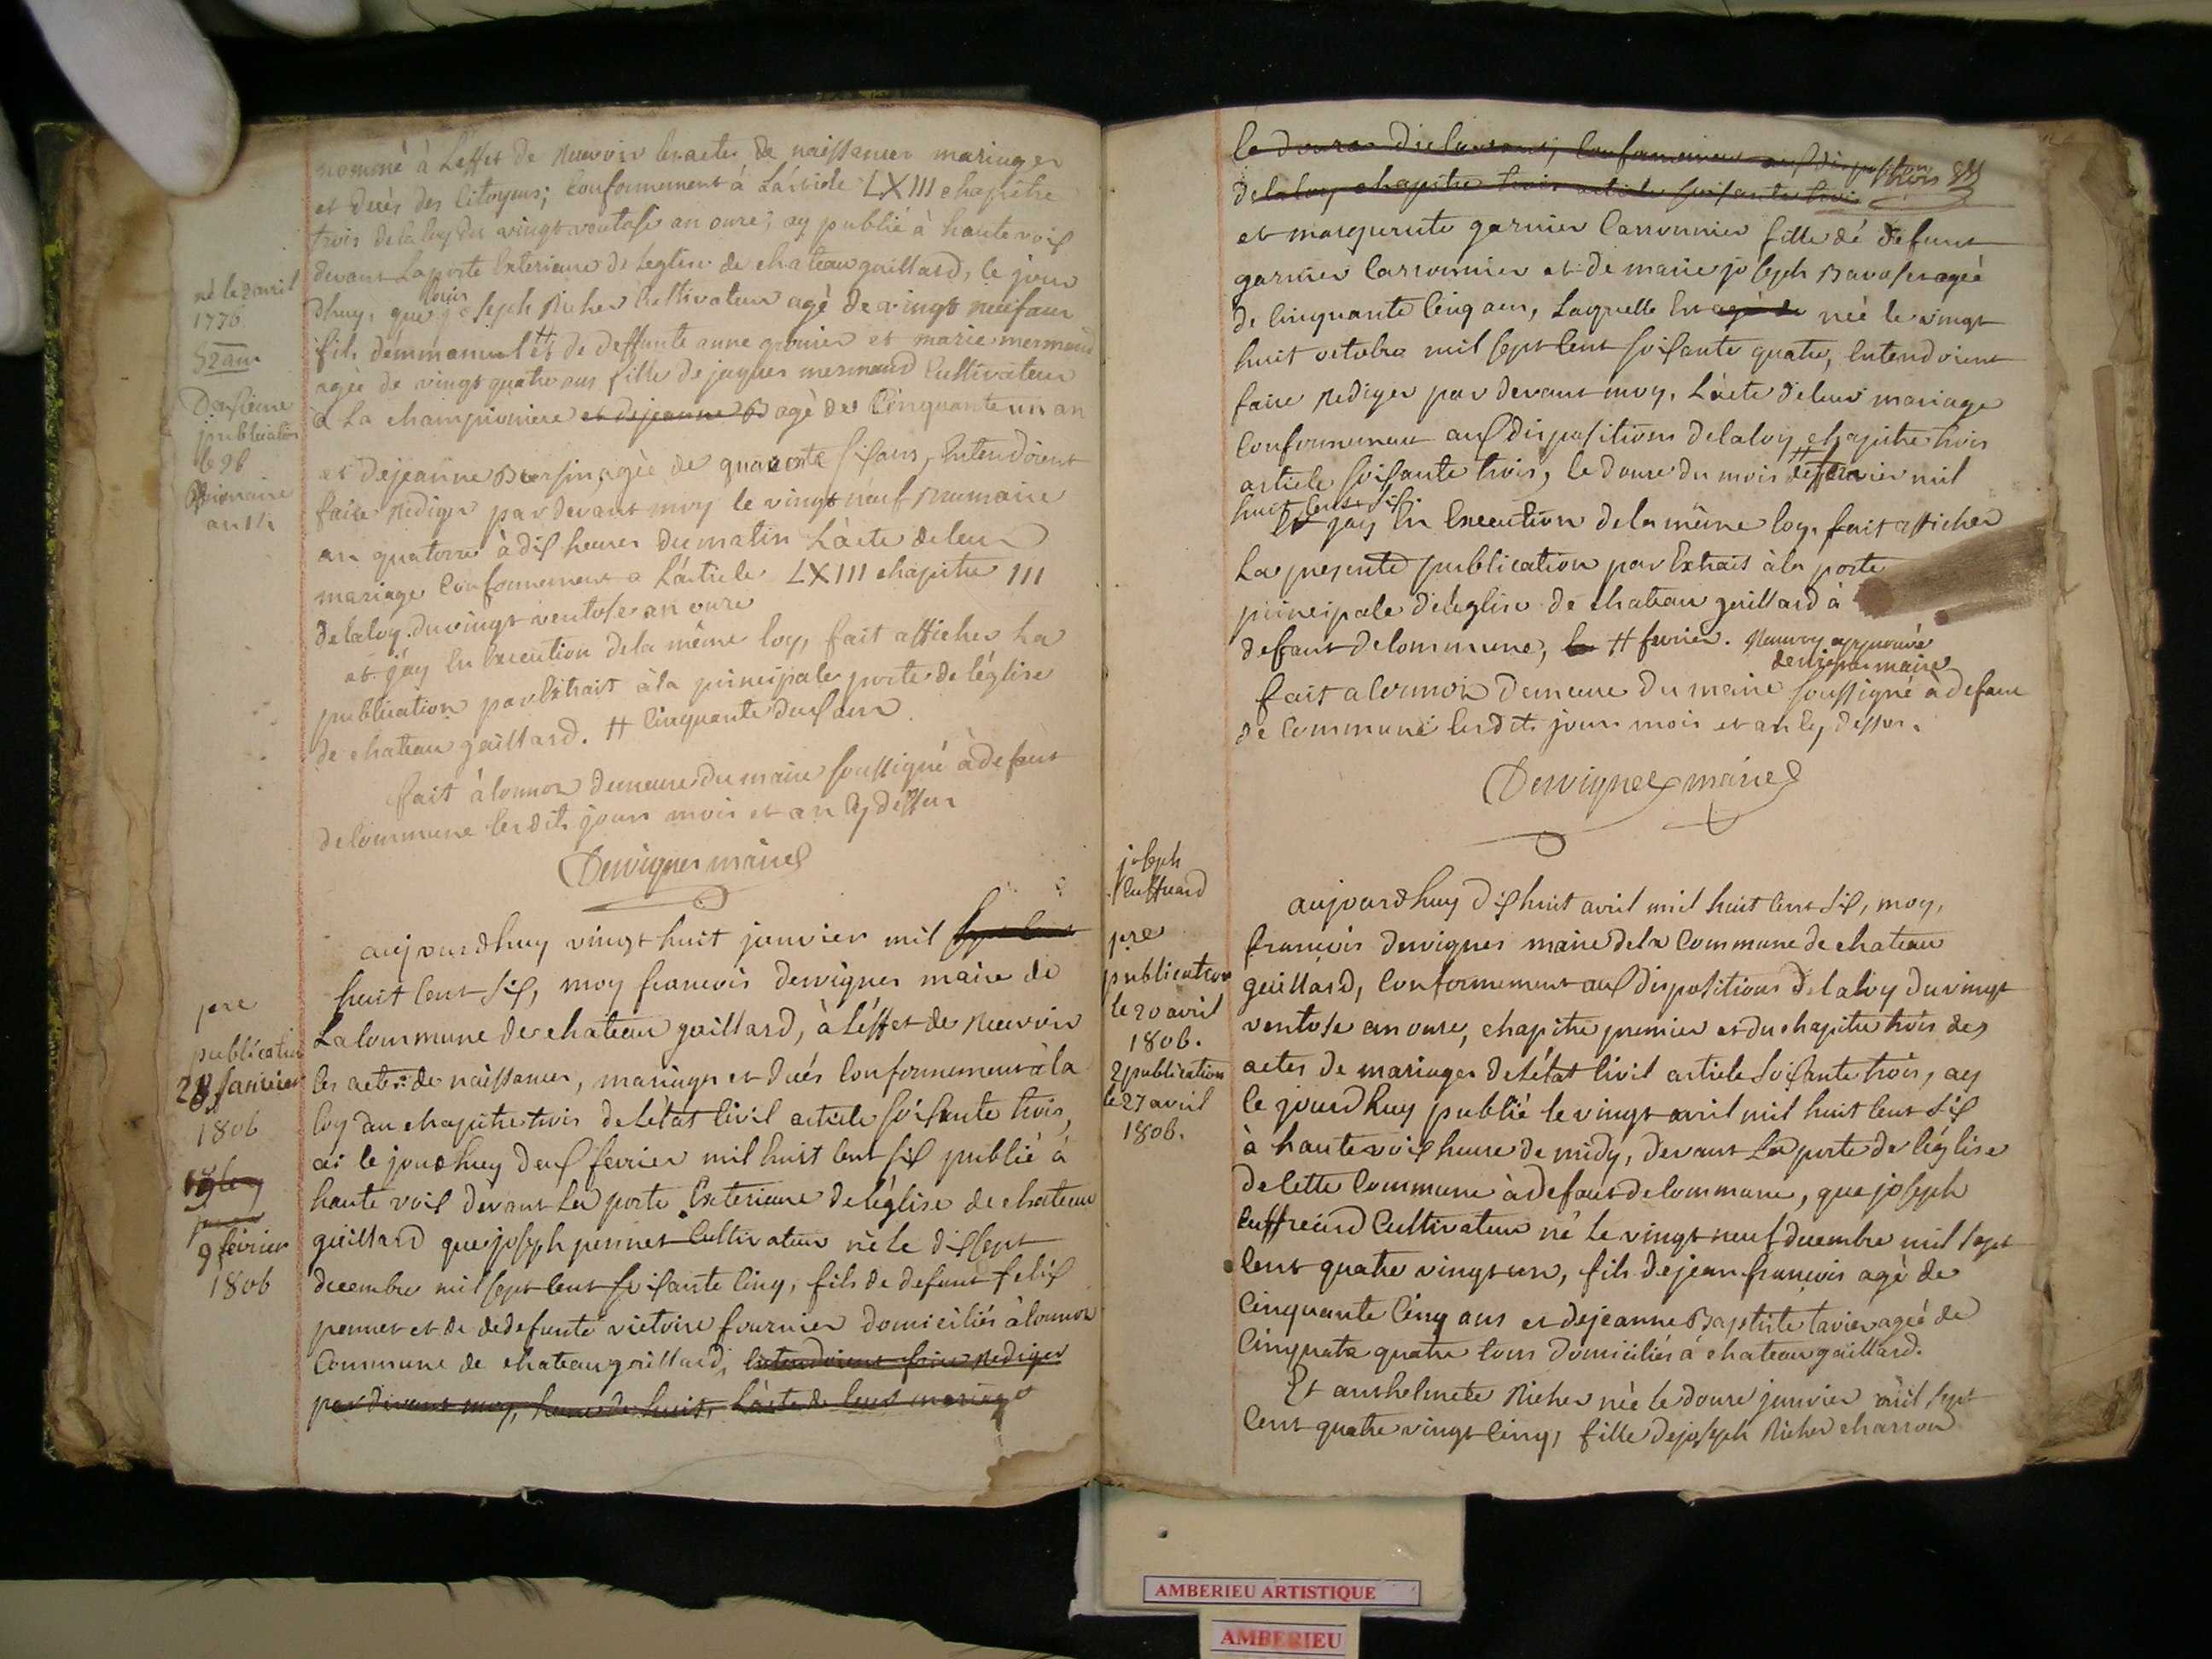 nommé à Leffet de Recevoir les actes de naissances mariages
et decès des Citoyens; Conformement à L'article LXIII chapitre
trois de la loy du vingt ventose an onze; ay publié à haute voix
devant La porte Exterieure de Léglise de chateau gaillard, le jour
dhuy, que joseph Richer Cultivateur agè de vingt neuf ans
louis
fils demmanuel # et de deffunte anne grenier et marie mermand
agée de vingt quatre ans fille de jaques mermand Cultivateur
a La championiere et de jeanne B agè de Cinquante un an
et de jeanne Bersin agèe de quarente six ans, Entendoient
faire Rediger par devant moy le vingt neuf Brumaire
an quatorze à dix heures du matin L'acte de leur
mariage Conformement a L'article LXIII chapitre III
de la loy du vingt ventose an onze
et j'ay En Execution de la même loy, fait afficher La
publication par Extrait à la principale porte de léglise
de chateau gaillard. # Cinquante deux ans
fait à Cormoz demeure du maire soussigné à defaut
de Commune les dits jours mois et an Cy dessus
Dervignes maire
né le 2 avril
1776
52 ans
Deuxieme
publication
le 26
Brumaire
an 14
aujourdhuy vingt huit janvier mil sept cent
huit Cent Six, moy francois dervignes maire de
La Commune de chateau gaillard, à L'éffet de Recevoir
les actes de naissances, mariages et decés Conformement à la
loy du chapitre trois de L'état Civil article soixante trois,
ai le jourdhuy deux fevrier mil huit Cent six publié à
haute voix devant La porte Exterieure de léglise de chateau
gaillard que joseph pennet Cultivateur né le dixsept
decembre mil sept Cent soixante Cinq, fils de defunt felix
pennet et de dedefunte victoire fournier domiciliés à Cormoz
Commune de chateau gaillard, Entendoient faire Rediger
par devant moy, heure de huit, L'acte de leur mariage
pre
publication
28 Janvier
1806
9 fevrier
1806
le douze du courant, Conformement aux dispositions
de la loy chapitre trois article soixante trois trois
et marguerite garnier Carronnier fille de defunt
garnier Carronnier et de marie joseph Bavoser agéé
de Cinquante Cinq ans, Laquelle Est agè de née le vingt
huit octobre mil sept Cent soixante quatre, Entendoient
faire Rediger par devant moy, L'acte de leur mariage
Conformement aux dispositions de la loy chapitre trois
article soixante trois, le douze du mois # de fevrier mil
huit Cent six.
Et jay En Execution de la même loy, fait afficher
La presente publication par Extrait à la porte
principale de léglise de chateau gaillard à
defaut de Commune, le # fevrier. Renvoy approuvée
dervignes maire
fait a Cormoz demeure du maire soussigné à defaut
de Commune les dits jours mois et an Cy dessus.
Dervignes maire
joseph
Cuffread
pre
publication
le 20 avril
1806.
2 publication
le 27 avril
1806.
aujourdhuy dix huit avril mil huit Cent Six, moy,
francois dervignes maire de la Commune de chateau
gaillard, Conformement aux dispositions de la loy du vingt
ventose an onze, chapitre premier et du chapitre trois des
actes de mariages de L'état Civil article Soixante trois, ay
le jourdhuy publié le vingt avril mil huit Cent Six
à haute voix heure de midy, devant La porte de léglise
de Cette Commune à defaut de Commune, que joseph
Cuffread Cultivateur né Le vingt neuf decembre mil sept
Cent quatre vingt un, fils de jean francois agè de
Cinquante Cinq ans et de jeanne Baptiste tavier agéé de
Cinquate quatre tous Domiciliés à chateau gaillard.
Et anthelmete Richer née le douze janvier mil sept
Cent quatre vingt Cinq, fille de joseph Richer charron
AMBERIEU ARTISTIQUE
AMBERIEU